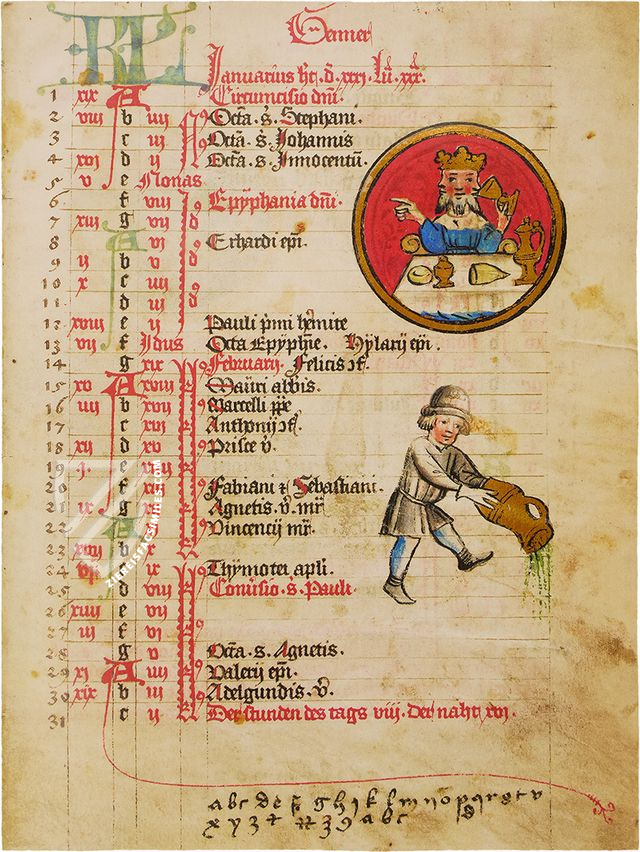 KL Genner
Januarius hꝫ. d. xxxi. Lu. xxx.
1 xix A Circumcisio dni.
2 viii b iiii Octa. s. Stephani.
3 c iii Octa. s. Johannis
4 xvi d ii Octa. s. Innocentu.
5 v e Nonas
6 f viii Epyphania dni.
7 xiii g vii
8 A vi Erhardi epi.
9 ii b v
10 x c iiii
11 d iii
12 xviii e ii Pauli pmi hmite
13 vii f Idus Octa Epyphie. Hylarij epi.
14 g xix Februarij. Felicis
15 xv A xviii Mauri abbis.
16 iiii b xvii Marcelli ppe
17 c xvi Anthonij
18 xii d xv Prisce v.
19 e
20 f Fabiani Sebastiani.
21 ix g Agnetis. v. mr
22 A Vincencij mr.
23 b x
24 c ix Thymotei apli.
25 d viii Conusio. s. Pauli.
26 xiiii e vii
27 iii f vi
28 g v Octa. s. Agnetis.
29 xi A iiii Valerij epi.
30 xix b iii Adelgundis. v.
31 c ii Der stunden des tags viii. Der naht xvi.
ZIEREISFACSIMILES.COM
a b c d e f g h i k l m n o p q r s t v
x y z a b c